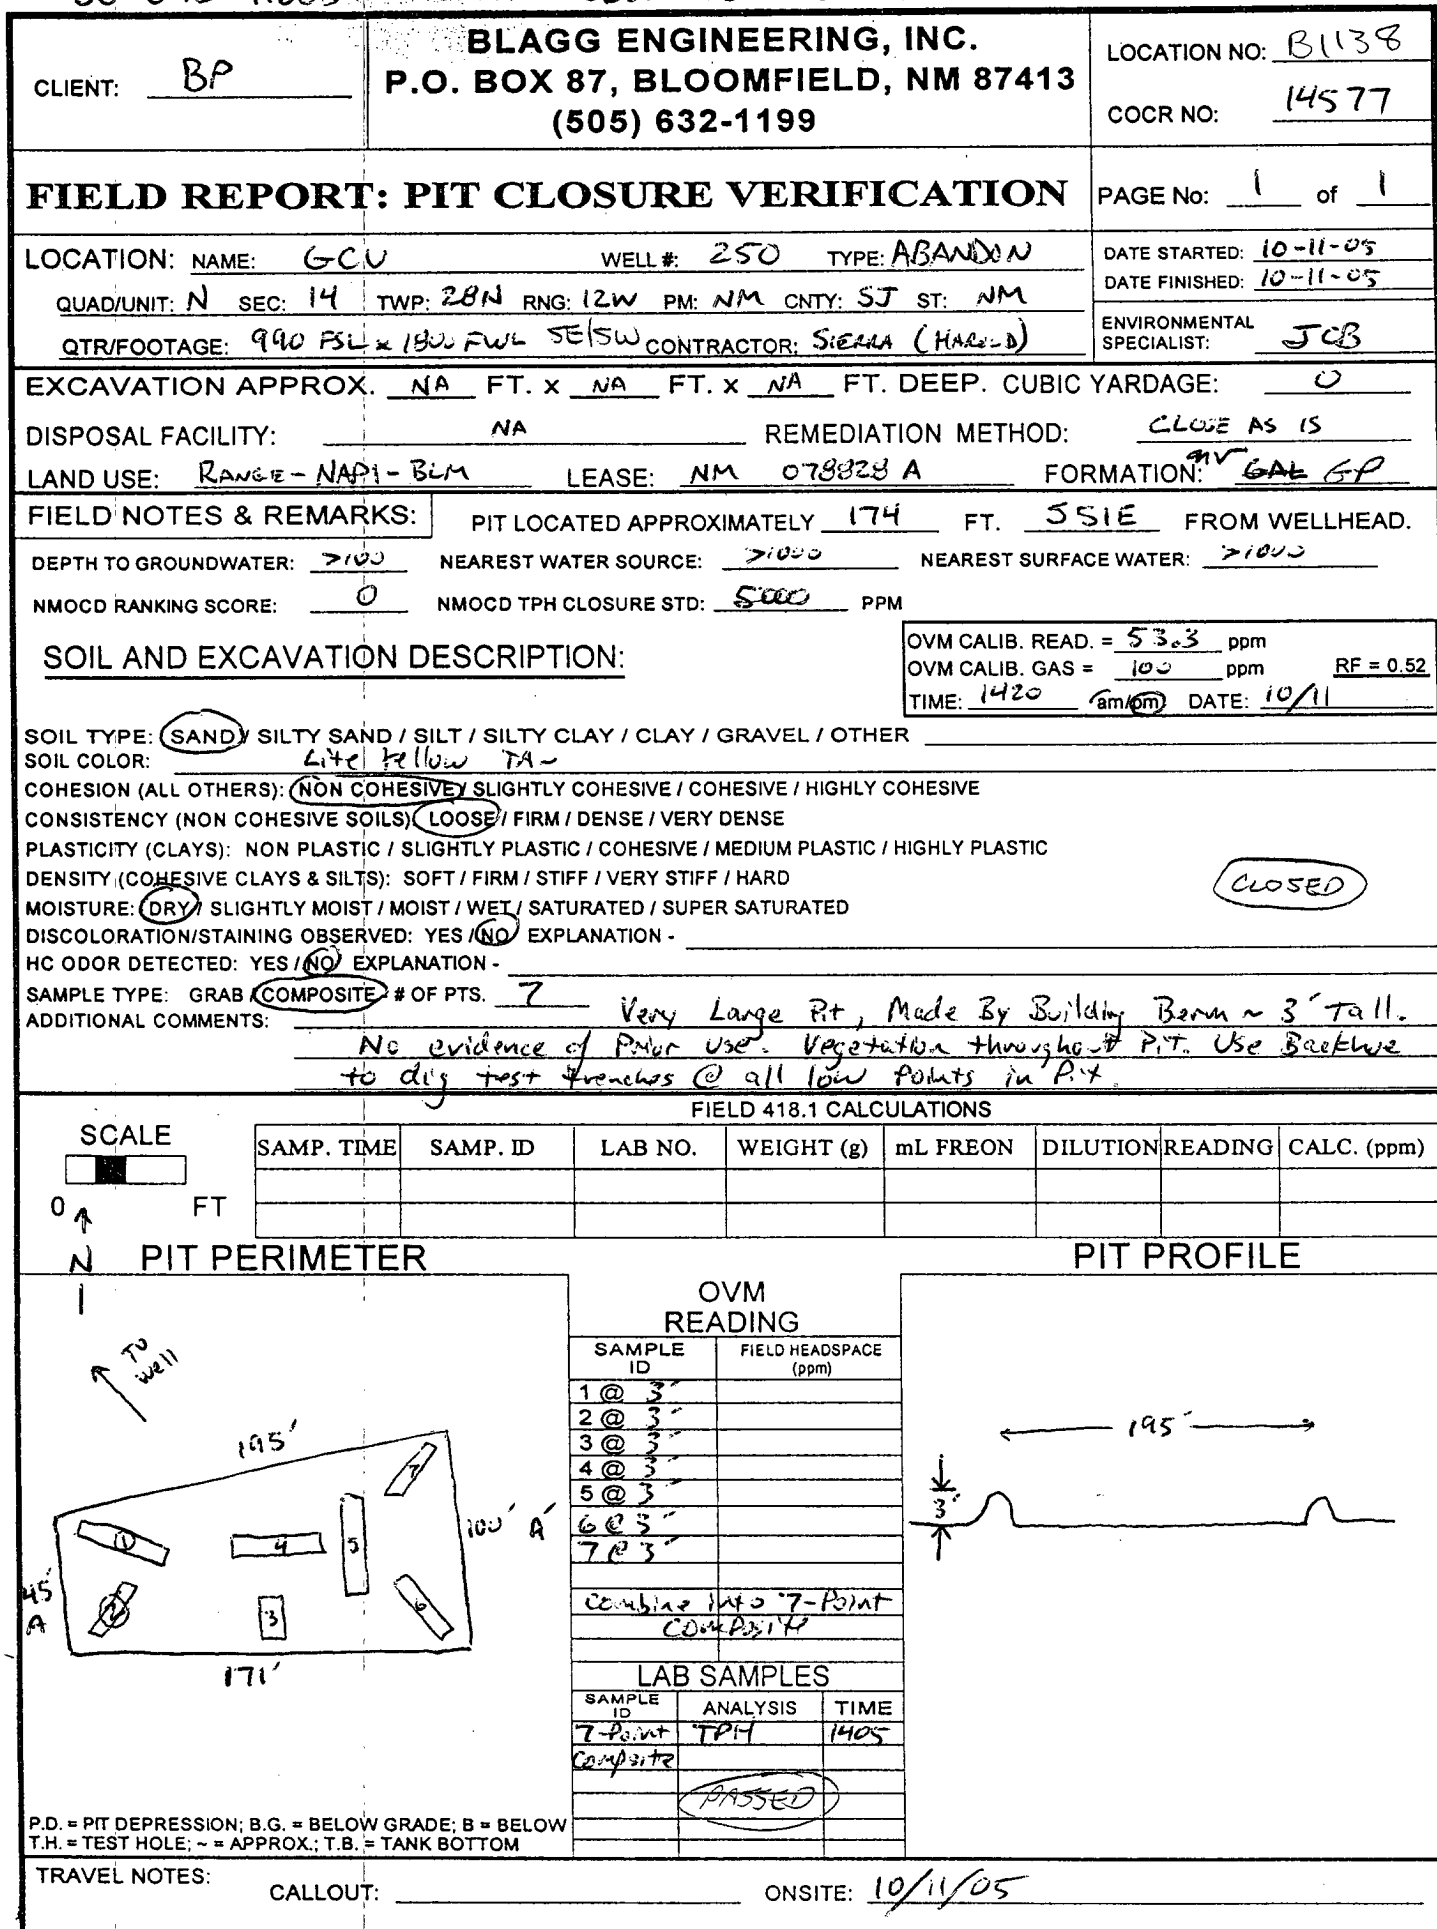 BLAGG ENGINEERING, INC.
P.O. BOX 87, BLOOMFIELD, NM 87413
(505) 632-1199
CLIENT: BP
LOCATION NO: B1138
COCR NO: 14577
FIELD REPORT: PIT CLOSURE VERIFICATION
PAGE No: 1 of 1
LOCATION: NAME: GCU WELL #: 250 TYPE: ABANDON
QUAD/UNIT: N SEC: 14 TWP: 28N RNG: 12W PM: NM CNTY: SJ ST: NM
QTR/FOOTAGE: 990 FSL x 1800 FWL SE/SW CONTRACTOR: SIERRA (HAROLD)
DATE STARTED: 10-11-05
DATE FINISHED: 10-11-05
ENVIRONMENTAL SPECIALIST: JCB
EXCAVATION APPROX. NA FT. x NA FT. x NA FT. DEEP. CUBIC YARDAGE: 0
DISPOSAL FACILITY: NA REMEDIATION METHOD: CLOSE AS IS
LAND USE: RANGE - NAPI - BLM LEASE: NM 078828 A FORMATION: GP
FIELD NOTES & REMARKS: PIT LOCATED APPROXIMATELY 174 FT. S51E FROM WELLHEAD.
DEPTH TO GROUNDWATER: >100 NEAREST WATER SOURCE: >1000 NEAREST SURFACE WATER: >1000
NMOCD RANKING SCORE: 0 NMOCD TPH CLOSURE STD: 5000 PPM
SOIL AND EXCAVATION DESCRIPTION:
OVM CALIB. READ. = 53.3 ppm
OVM CALIB. GAS = 100 ppm RF = 0.52
TIME: 1420 am/pm DATE: 10/11
SOIL TYPE: SAND / SILTY SAND / SILT / SILTY CLAY / CLAY / GRAVEL / OTHER
SOIL COLOR: Lite Yellow TAN
COHESION (ALL OTHERS): NON COHESIVE / SLIGHTLY COHESIVE / COHESIVE / HIGHLY COHESIVE
CONSISTENCY (NON COHESIVE SOILS): LOOSE / FIRM / DENSE / VERY DENSE
PLASTICITY (CLAYS): NON PLASTIC / SLIGHTLY PLASTIC / COHESIVE / MEDIUM PLASTIC / HIGHLY PLASTIC
DENSITY (COHESIVE CLAYS & SILTS): SOFT / FIRM / STIFF / VERY STIFF / HARD
CLOSED
MOISTURE: DRY / SLIGHTLY MOIST / MOIST / WET / SATURATED / SUPER SATURATED
DISCOLORATION/STAINING OBSERVED: YES / NO EXPLANATION -
HC ODOR DETECTED: YES / NO EXPLANATION -
SAMPLE TYPE: GRAB / COMPOSITE # OF PTS. 7
ADDITIONAL COMMENTS: Very Large Pit, Made By Building Berm ~ 3' Tall.
No evidence of Prior Use. Vegetation throughout Pit. Use Backhoe
to dig test trenches @ all low Points in Pit.
FIELD 418.1 CALCULATIONS
SCALE
0 FT
SAMP. TIME SAMP. ID LAB NO. WEIGHT (g) mL FREON DILUTION READING CALC. (ppm)
N
PIT PERIMETER
To well
195'
100' A'
45'
A
171'
1
2
3
4
5
6
7
OVM
READING
SAMPLE ID FIELD HEADSPACE (ppm)
1 @ 3'
2 @ 3'
3 @ 3'
4 @ 3'
5 @ 3'
6 @ 3'
7 @ 3'
Combine into 7-Point
Composite
LAB SAMPLES
SAMPLE ID ANALYSIS TIME
7-Point TPH 1405
Composite
PASSED
PIT PROFILE
195'
3'
P.D. = PIT DEPRESSION; B.G. = BELOW GRADE; B = BELOW
T.H. = TEST HOLE; ~ = APPROX.; T.B. = TANK BOTTOM
TRAVEL NOTES:
CALLOUT: ONSITE: 10/11/05